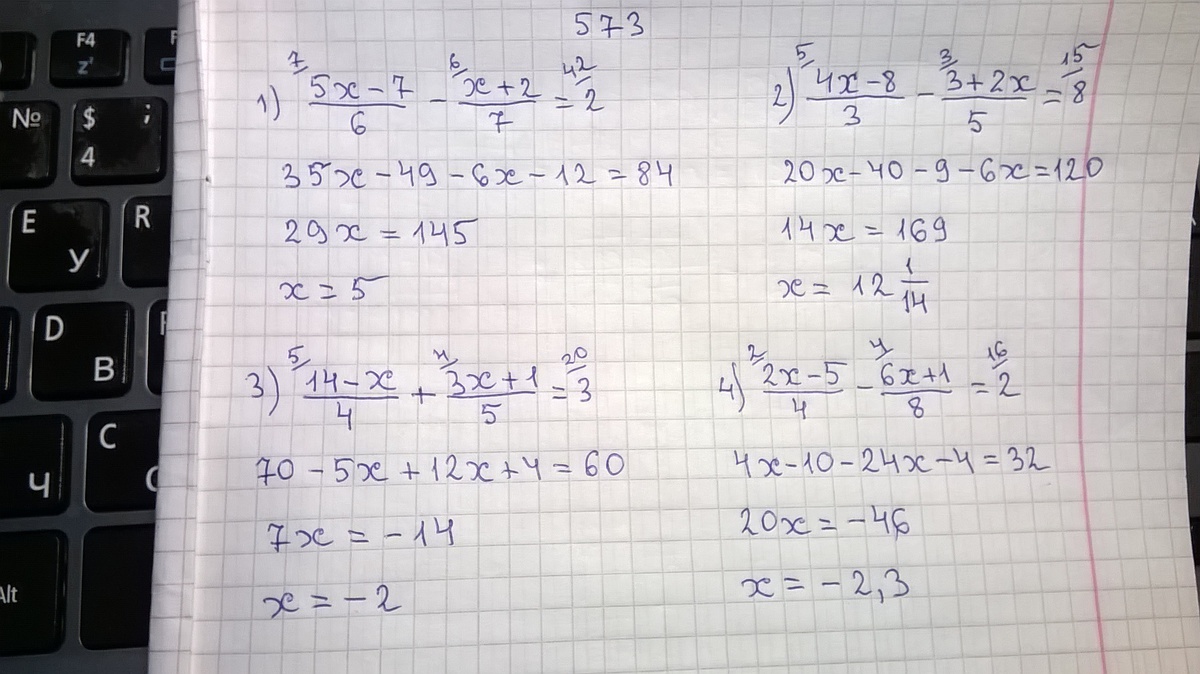 573
1) ⁷⁄(5x-7)/6 - ⁶⁄(x+2)/7 = ⁴²⁄2
35x-49-6x-12=84
29x=145
x=5
2) ⁵⁄(4x-8)/3 - ³⁄(3+2x)/5 = ¹⁵⁄8
20x-40-9-6x=120
14x=169
x=12 1/14
3) ⁵⁄(14-x)/4 + ⁴⁄(3x+1)/5 = ²⁰⁄3
70-5x+12x+4=60
7x=-14
x=-2
4) ²⁄(2x-5)/4 - ⁴⁄(6x+1)/8 = ¹⁶⁄2
4x-10-24x-4=32
20x=-46
x=-2,3
F4
z
№
$
;
4
E
У
R
D
В
C
Ч
Alt